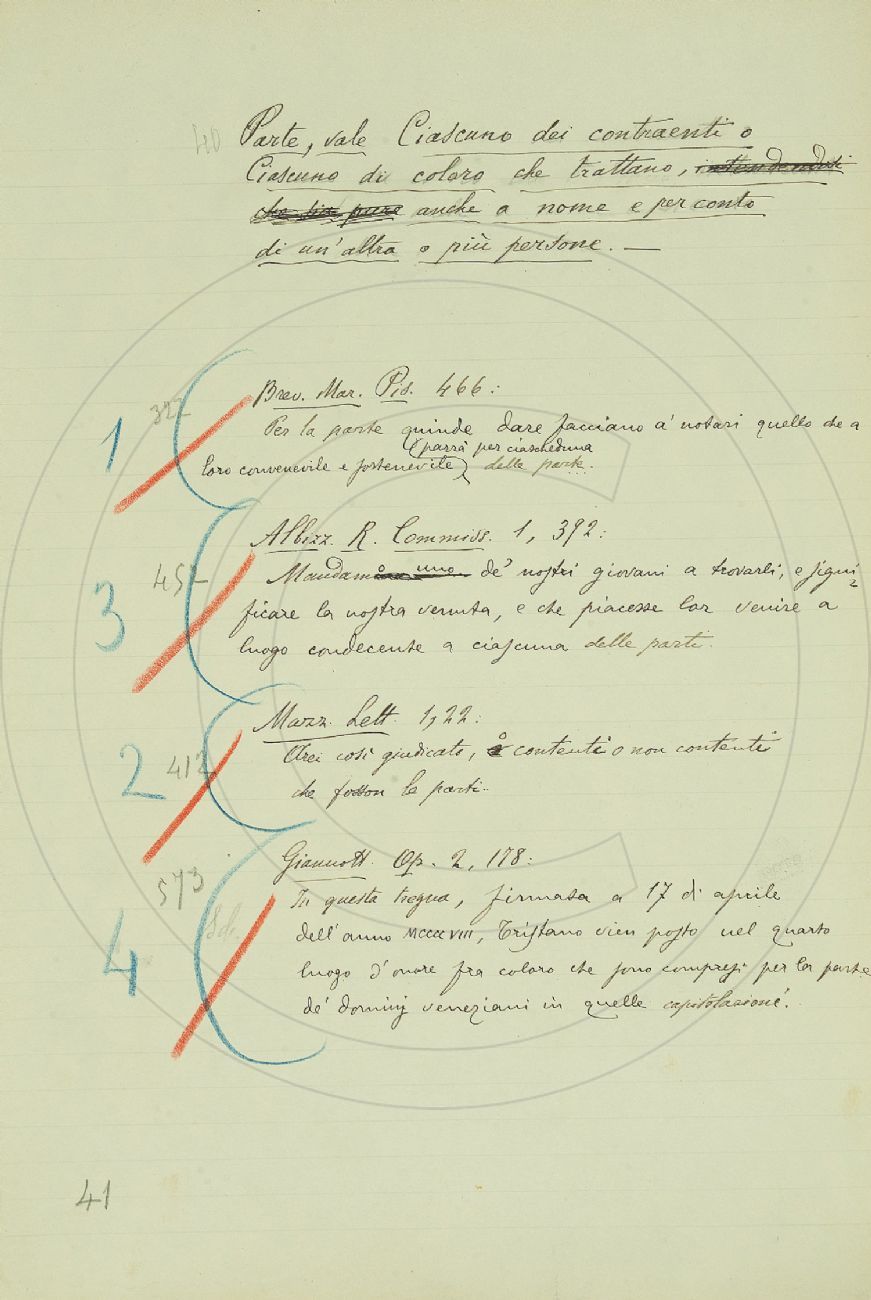 40
Parte, vale Ciascuno dei contraenti o
Ciascuno di coloro che trattano, intendendosi
che sia pure anche a nome e per conto
di un' altra o più persone. —
Brev. Mar. Pis. 466:
322
Per la parte quinde dare facciano a' notari quello che a
1
(parrà per ciascheduna
loro convenevile e sostenevile) delle parti.
Albizz. R. Commiss. 1, 392:
457
Mandamo uno de' nostri giovani a trovarli, e signi=
3
ficare la nostra venuta, e che piacesse lor venire a
luogo condecente a ciascuna delle parti.
Mazz. Lett. 1, 22:
2
412
Avrei così giudicato, o contenti o non contenti
che fosson le parti.
Giannott. Op. 2, 178:
573
In questa tregua, firmata a 17 di aprile
4
dell' anno MCCCCVIII, Tristano vien posto nel quarto
luogo d' onore fra coloro che sono compresi per la parte
de' dominj veneziani in quelle capitolazione.
41